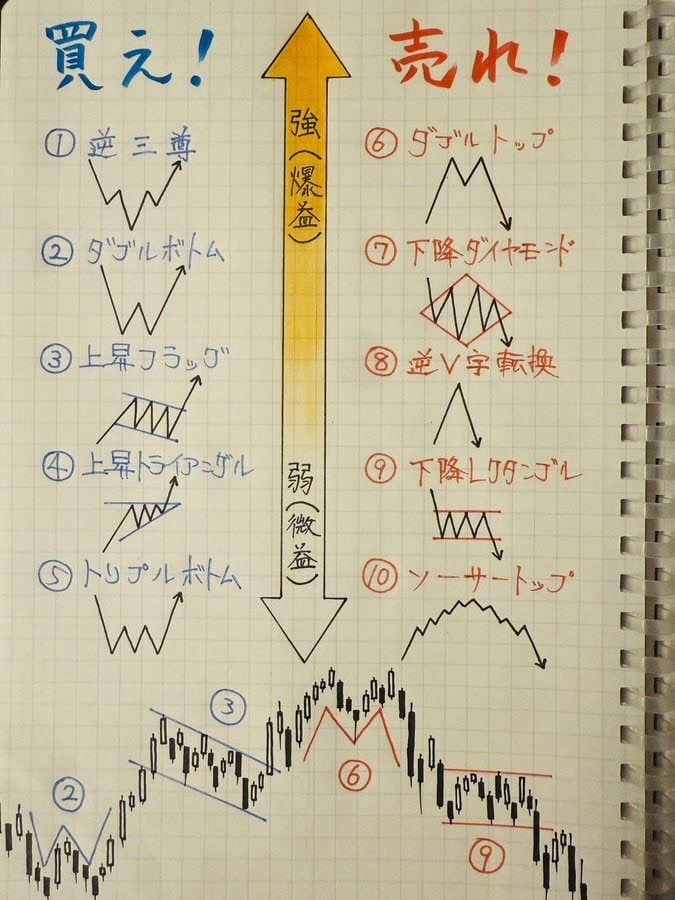 買え!
売れ!
強(爆益)
弱(微益)
① 逆三尊
② ダブルボトム
③ 上昇フラッグ
④ 上昇トライアングル
⑤ トリプルボトム
⑥ ダブルトップ
⑦ 下降ダイヤモンド
⑧ 逆V字転換
⑨ 下降レクタングル
⑩ ソーサートップ
②
③
⑥
⑨